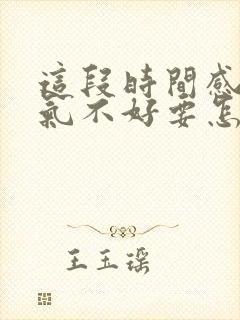 這段時間感
氣不好要怎
王玉瑶